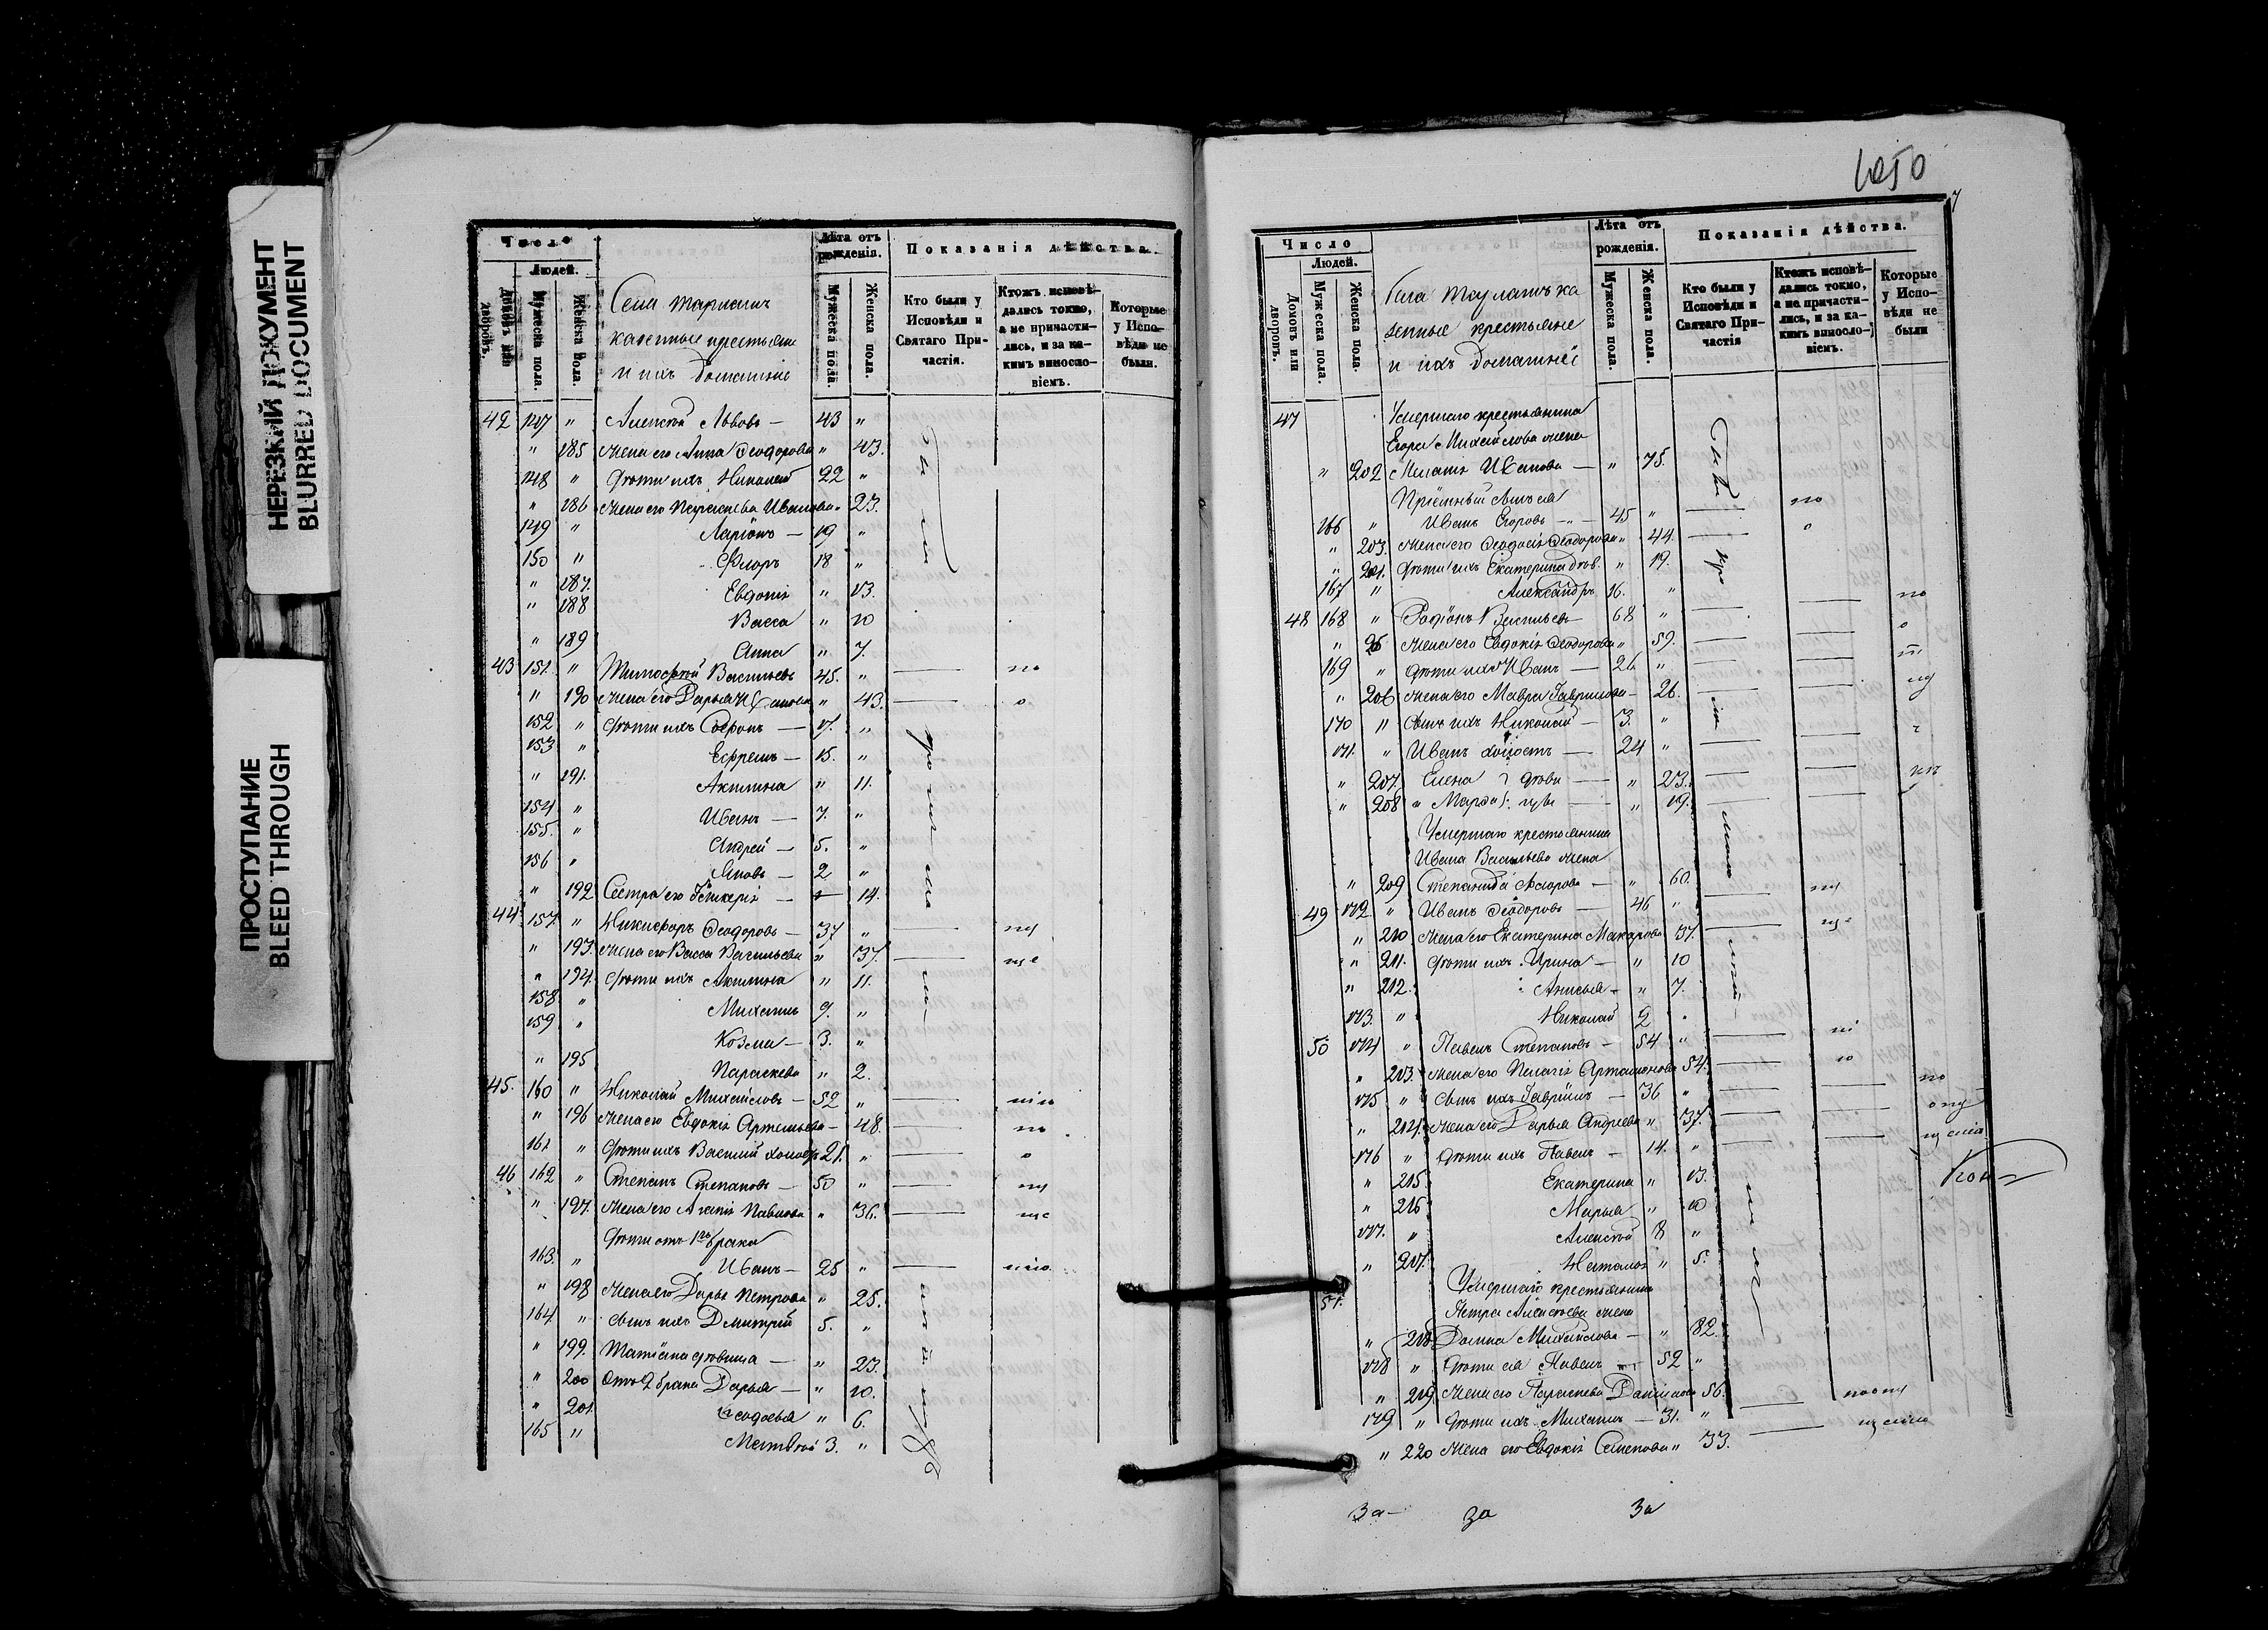 НЕРЕЗКИЙ ДОКУМЕНТ
BLURRED DOCUMENT
ПРОСТУПАНИЕ
BLEED THROUGH
Число
Людей.
Домовъ или дворовъ.
Мужеска пола.
Женска пола.
Села
казенные крестьяне
и ихъ домашніе
Лѣта отъ рожденія.
Мужеска пола.
Женска пола.
Показанія дѣйства.
Кто были у Исповѣди и Святаго Причастія.
Ктожъ исповѣдались токмо, а не причастились, и за какимъ винословіемъ.
Которые у Исповѣди не были.
42 147 " Алексѣй Львовъ — 43 "
" 185 Жена его Анна Ѳеодорова " 43.
148 " Дѣти ихъ Николай 22 "
" 186 Жена его Параскева Иванова " 23.
149 " Ларіонъ — 19 "
150 " Флоръ 18 "
" 187. Евдокія " 13.
" 188 Васса " 10
" 189 Анна " 7.
43 151. " Тимоѳей Васильевъ 45. "
" 190 Жена его Дарья Иванова " 43.
152 " Дѣти ихъ Софронъ — 17. "
153 " Ефремъ — 15. "
" 191. Акилина " 11.
154 " Иванъ — 7. "
155. " Андрей — 5. "
156 " Яковъ — 2 "
" 192 Сестра его Гликерія — 14.
44 157 " Никифоръ Ѳеодоровъ — 37 "
" 193. Жена его Васса Васильева " 37.
" 194. Дѣти ихъ Акилина " 11.
158 " Михаилъ 9. "
159 " Козма — 3. "
" 195 Параскева " 2.
45. 160 " Николай Михайловъ — 52 "
" 196 Жена его Евдокія Артемьева — 48.
161 " Дѣти ихъ Василий холостъ 21. "
46 162 " Степанъ Степановъ — 50 "
" 197. Жена его Агапія Павлова " 36.
Дѣти отъ 1го брака
163. " Иванъ — 25 "
" 198 Жена его Дарья Петрова " 25.
164 " Сынъ ихъ Дмитрій 5. "
" 199. Татіана дѣвица — " 23.
" 200 Отъ 2 брака Дарья — " 10.
" 201. Ѳеодосья " 6.
165 " Матвѣй 3. "
1250
7
Число
Людей.
Домовъ или дворовъ.
Мужеска пола.
Женска пола.
казенные крестьяне
и ихъ домашніе
Лѣта отъ рожденія.
Мужеска пола.
Женска пола.
Показанія дѣйства.
Кто были у Исповѣди и Святаго Причастія
Ктожъ исповѣдались токмо, а не причастились, и за какимъ винословіемъ.
Которые у Исповѣди не были
47 Умершаго крестьянина
Егора Михайлова жена
" 202 Меланія Иванова — " 75.
Пріемный сынъ ея
166 " Иванъ Егоровъ — 45 "
" 203. Жена его Ѳеодосія Ѳеодорова " 44.
" 204. Дѣти ихъ Екатерина дѣв. " 19.
167 " Александръ 16. "
48 168 " Родіонъ Васильевъ 68 "
" 205 Жена его Евдокія Ѳеодорова " 59.
169 " Дѣти ихъ Иванъ — 26 "
" 206 Жена его Мавра Гаврилова — 26.
170 " Сынъ ихъ Николай — 3. "
171. " Иванъ холостъ — 24 "
" 207. Елена " 23.
" 208 " Марѳа " 19.
Умершаго крестьянина
Ивана Васильева жена
" 209 Степанида — " 60.
49 172 " Иванъ Ѳеодоровъ — 46 "
" 210 Жена его Екатерина Макарова 37.
" 211. Дѣти ихъ Ирина — " 10
" 212. Анисья — " 7.
173. " Николай 2 "
50 174 " Павелъ Степановъ — 54 "
" 213. Жена его Пелагія Артамонова 54.
175 " Сынъ ихъ Гавріилъ — 36 "
" 214. Жена его Дарья Андреева " 37.
176 " Дѣти ихъ Павелъ — 14. "
" 215 Екатерина " 13.
" 216 Марья " 10
177. " Алексѣй 8 "
" 217. Наталья " 5.
51. Умершаго крестьянина
Петра Алексѣева жена
" 218 Домна Михайлова — " 82.
178 " Дѣти ея Павелъ — 52 "
" 219. Жена его Параскева Данилова 56.
179 " Дѣти ихъ Михаилъ — 31. "
" 220 Жена его Евдокія Семенова " 33.
За— За За